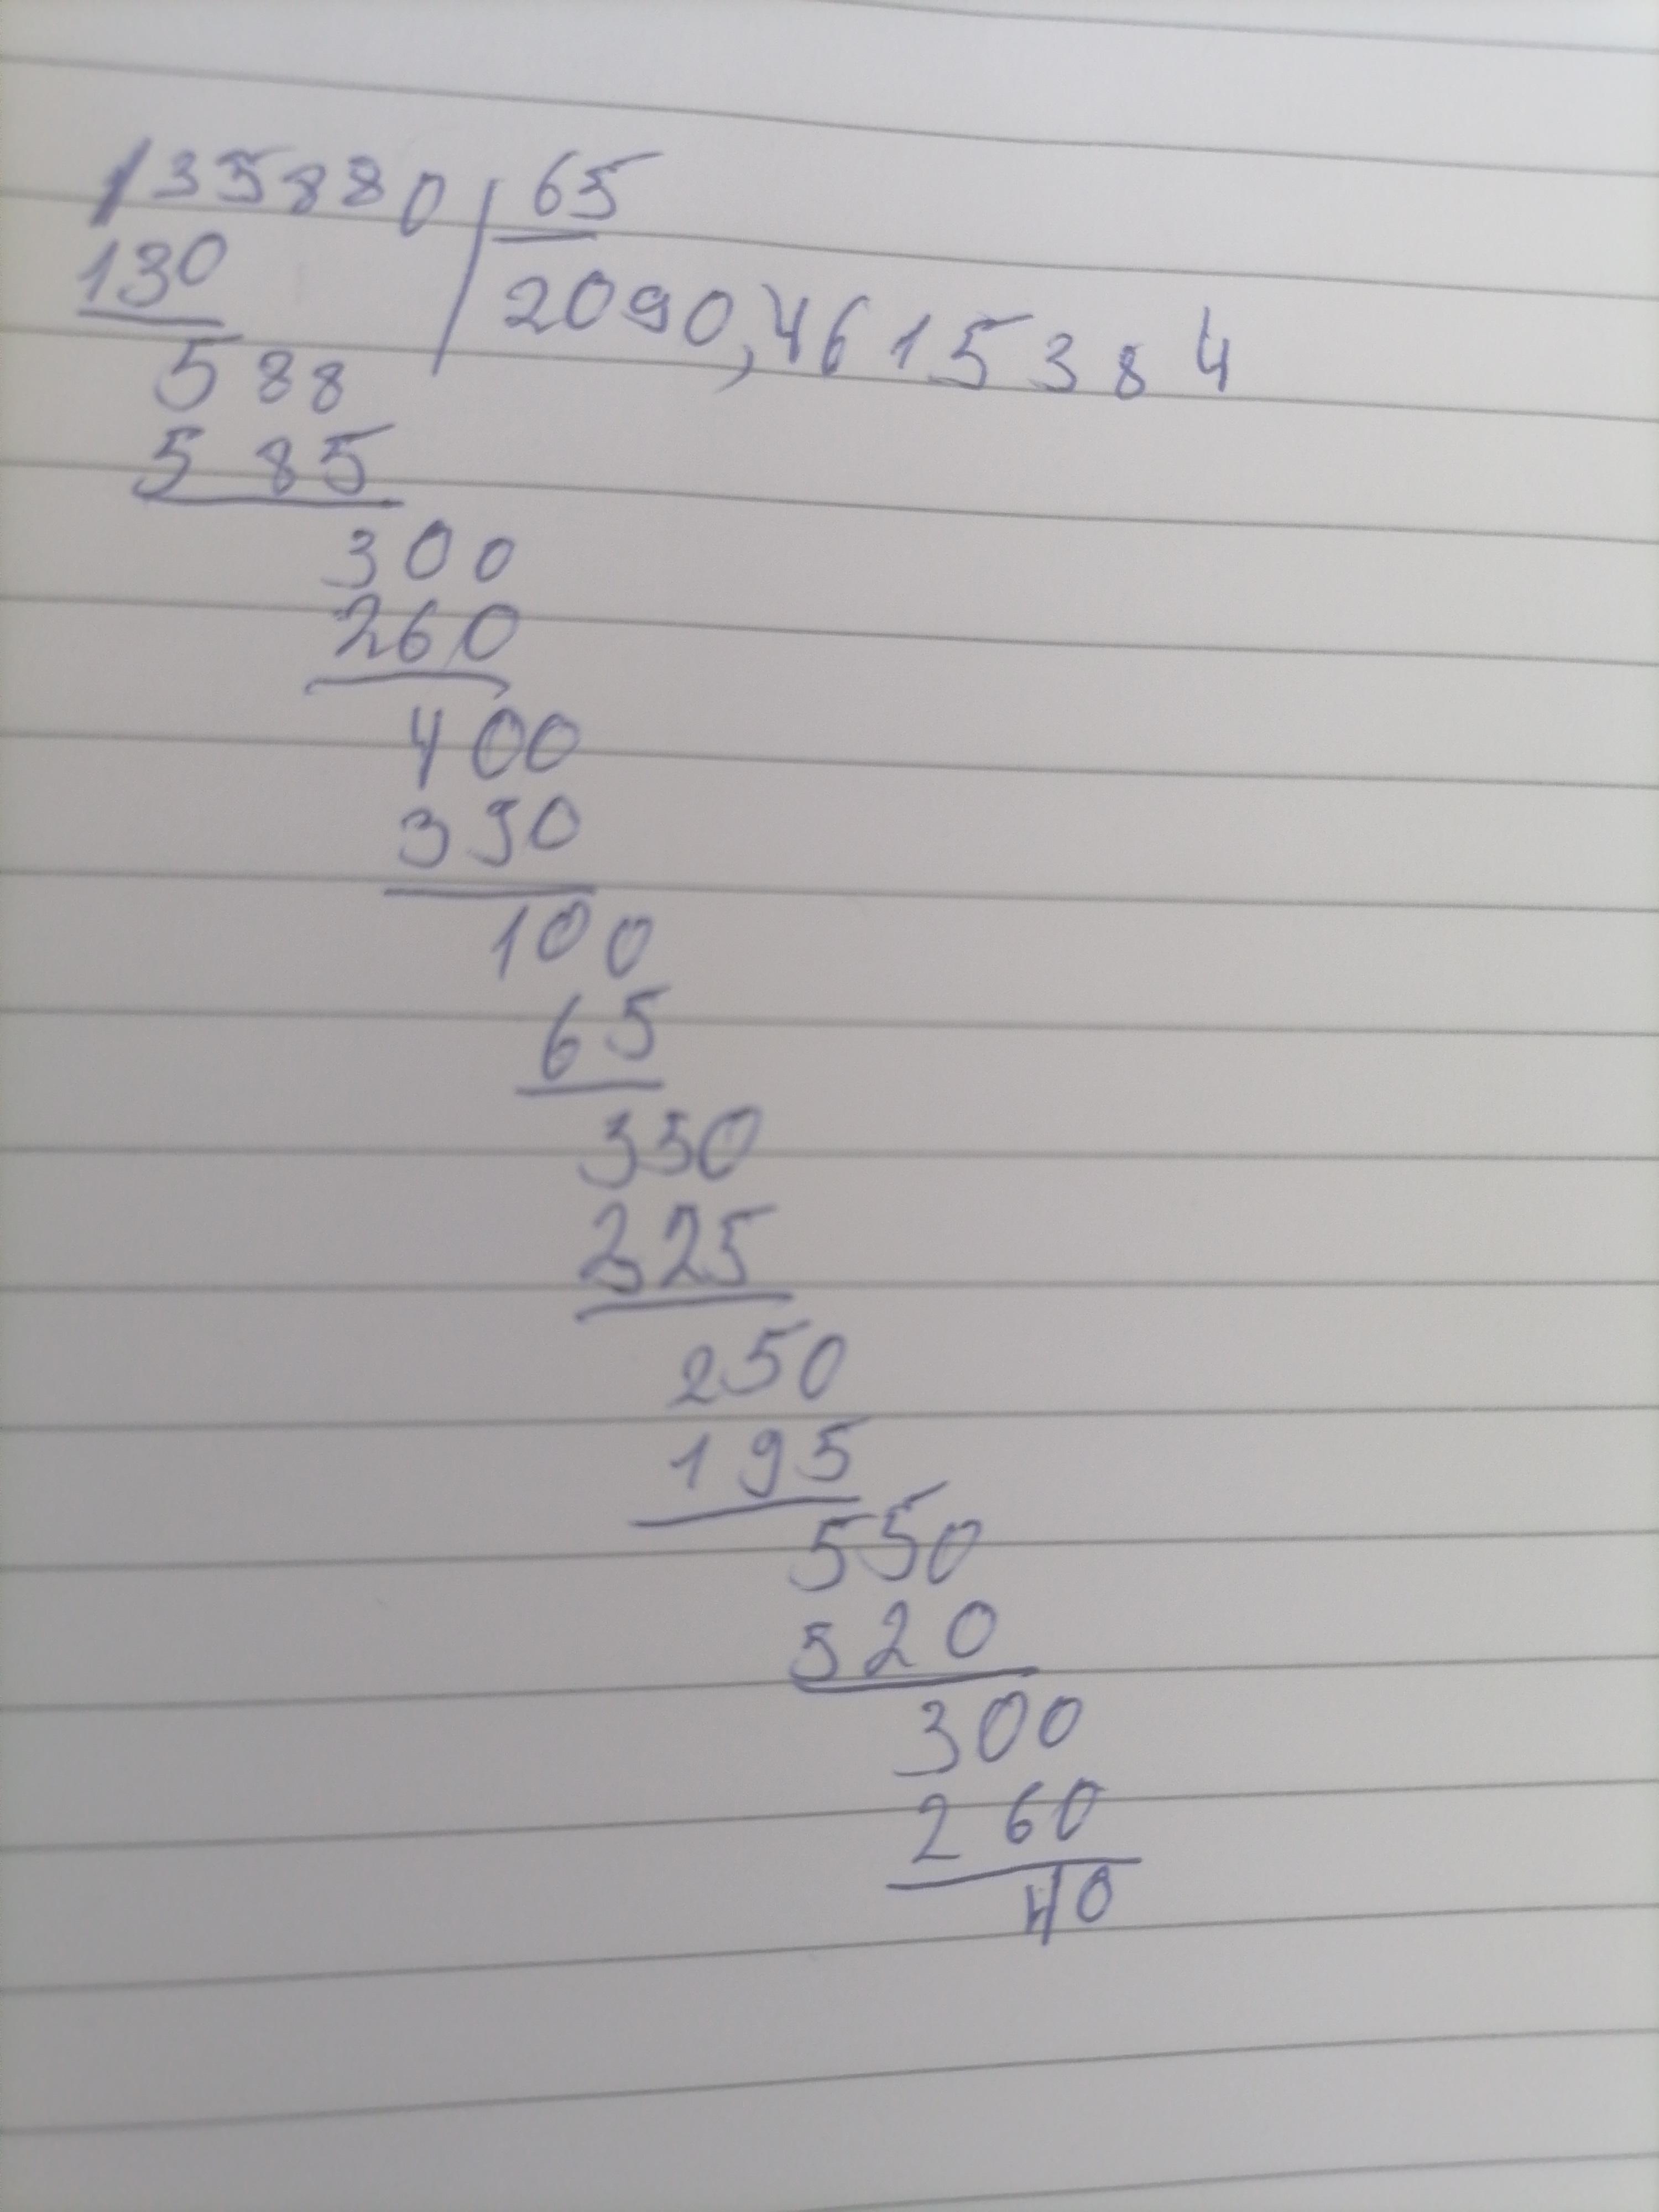 135880 65
130 2090,4615384
588
585
300
260
400
390
100
65
350
325
250
195
550
520
300
260
40